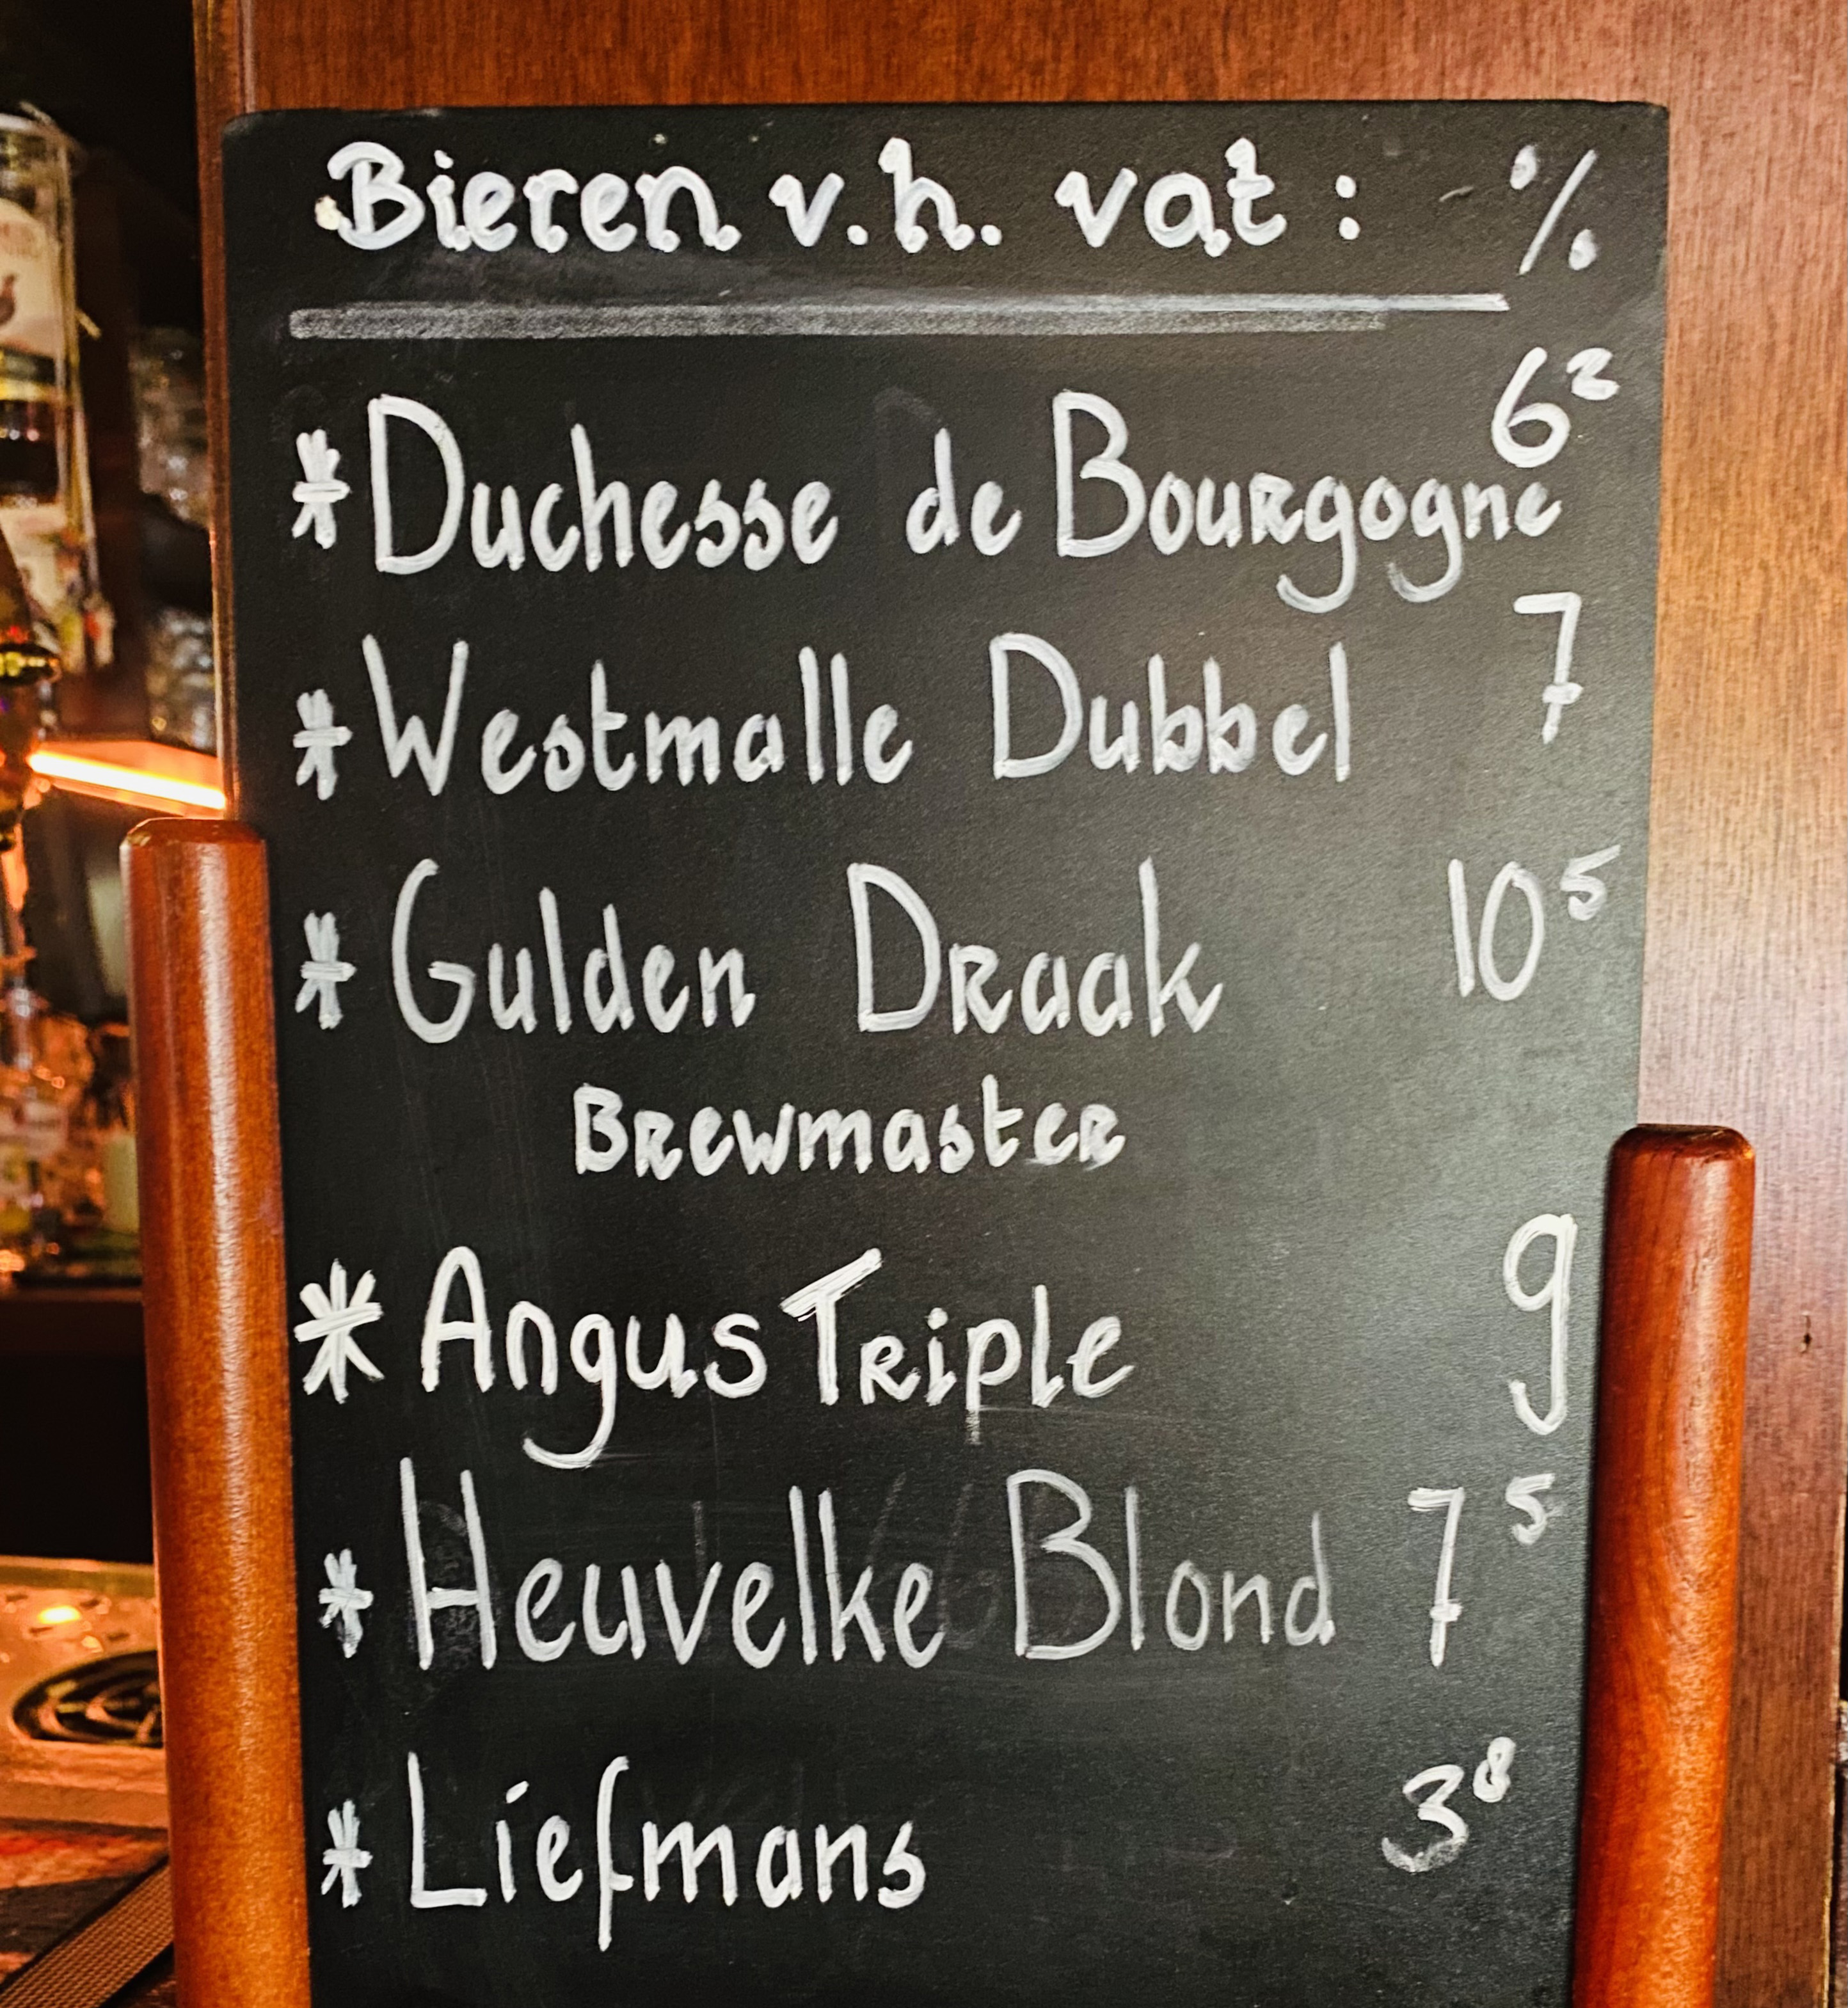 Bieren v.h. vat : %
* Duchesse de Bourgogne 6²
* Westmalle Dubbel 7
* Gulden Draak 10⁵
Brewmaster
* Angus Triple 9
* Heuvelke Blond 7⁵
* Liefmans 3⁸